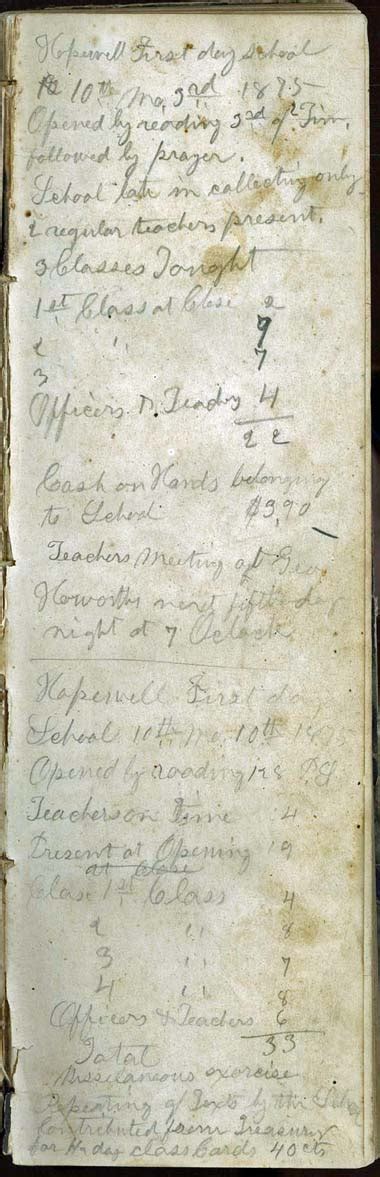 Hopewell First day School
10th Mo, 3rd 1875
Opened by reading 3rd of 2 Tim.
followed by prayer.
School late in collecting only
2 regular teachers present.
3 Classes Tonight
1st Class at Close 2
2 " 9
3 7
Officers & Teachers 4
22
Cash on Hands belonging
to School $3,90
Teachers Meeting at Geo
Howorths next fifth day
night at 7 Oclock
Hopewell First day
School 10th Mo, 10th 1875
Opened by reading 128 Ps
Teachers on Time 4
Present at Opening 19
at Close
Class 1st Class 4
2 " 8
3 " 7
4 " 8
Officers & Teachers 6
Total 33
Misselaneous exercise
Repeating of Texts by the School
Contributed from Treasury
for class Cards 40 cts